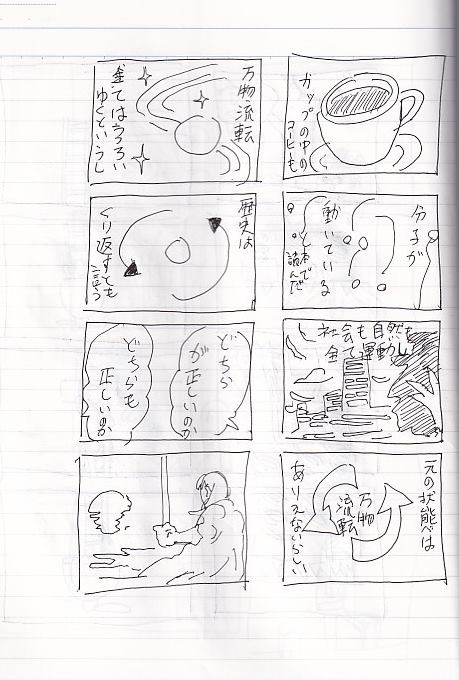 カップの中の
コーヒーも
分子が
動いている
と本で
読んだ
社会も自然も
全て運動し
元の状態は
万物
流転
ありえないらしい
万物流転
全てはうつろい
ゆくというし
歴史は
くり返すとも
言う
どちら
が正しいのか
どちらも
正しいのか